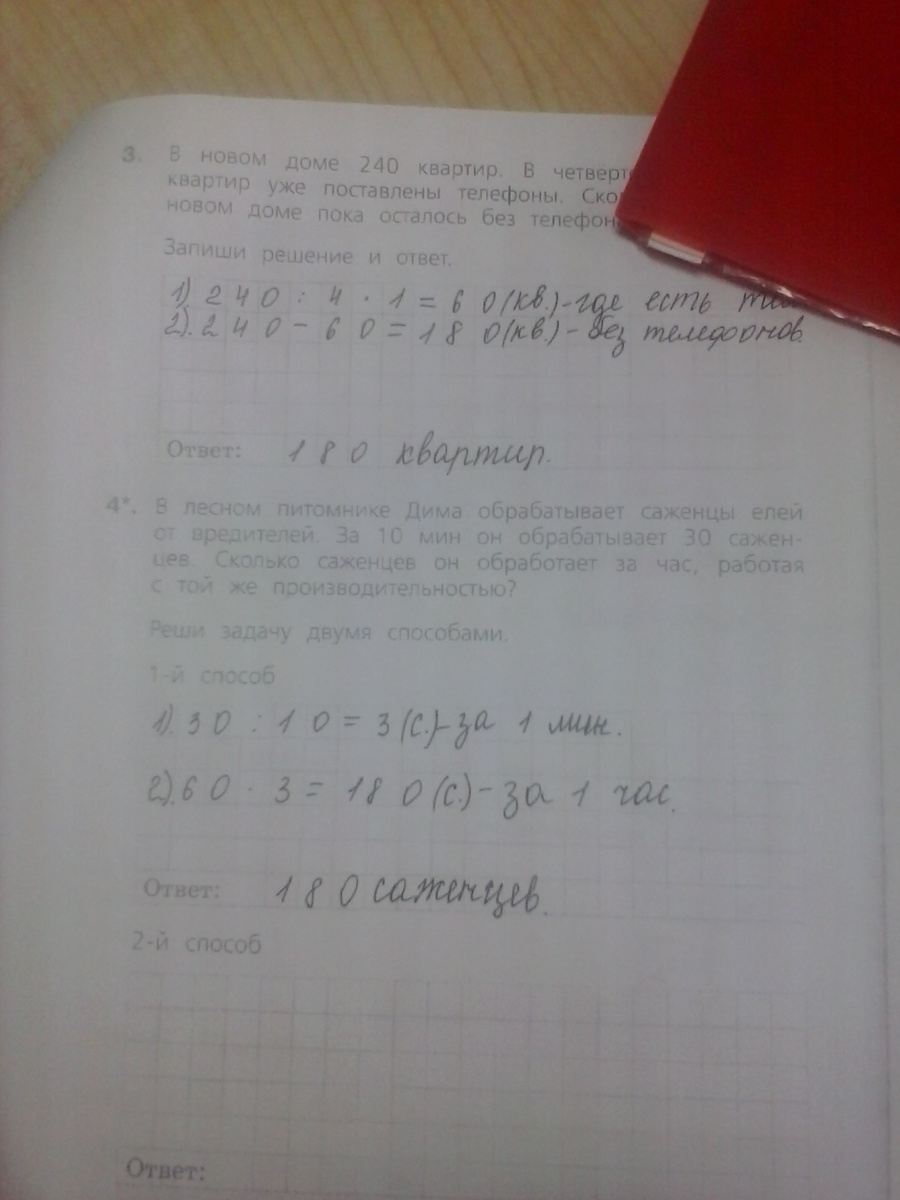 3. В новом доме 240 квартир. В четверт
квартир уже поставлены телефоны. Ско
новом доме пока осталось без телефон
Запиши решение и ответ.
1) 240 : 4 · 1 = 60(кв.)-где есть
2). 240 - 60 = 180(кв.) - без телефонов.
Ответ: 180 квартир.
4*. В лесном питомнике Дима обрабатывает саженцы елей
от вредителей. За 10 мин он обрабатывает 30 сажен-
цев. Сколько саженцев он обработает за час, работая
с той же производительностью?
Реши задачу двумя способами.
1-й способ
1). 30 : 10 = 3(с.)-за 1 мин.
2). 60 · 3 = 180(с.)-за 1 час.
Ответ: 180 саженцев.
2-й способ
Ответ: